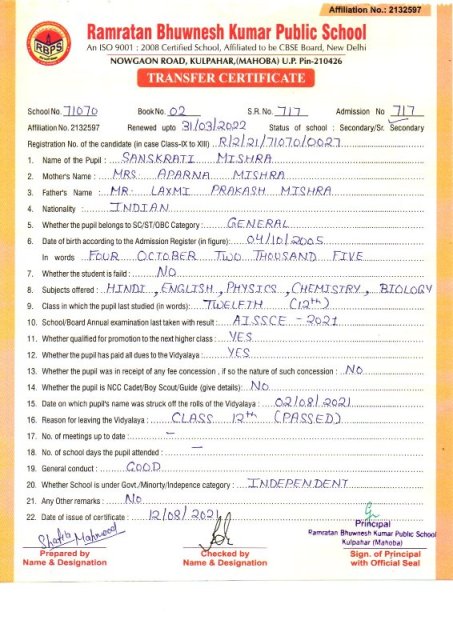 Affiliation No.: 2132597
RBPS
Ramratan Bhuwnesh Kumar Public School
An ISO 9001 : 2008 Certified School, Affiliated to be CBSE Board, New Delhi
NOWGAON ROAD, KULPAHAR,(MAHOBA) U.P. Pin-210426
TRANSFER CERTIFICATE
School No. 71070 Book No. 02 S.R. No. 717 Admission No 717
Affiliation No. 2132597 Renewed upto 31/03/2022 Status of school : Secondary/Sr. Secondary
Registration No. of the candidate (in case Class-IX to XIII) R/2/21/71070/0027
1. Name of the Pupil : SANSKRATI MISHRA
2. Mother's Name : MRS. APARNA MISHRA
3. Father's Name : MR. LAXMI PRAKASH MISHRA
4. Nationality : INDIAN
5. Whether the pupil belongs to SC/ST/OBC Category : GENERAL
6. Date of birth according to the Admission Register (in figure): 04/10/2005
In words FOUR OCTOBER TWO THOUSAND FIVE
7. Whether the student is faild : NO
8. Subjects offered : HINDI, ENGLISH, PHYSICS, CHEMISTRY, BIOLOGY
9. Class in which the pupil last studied (in words): TWELFTH (12th)
10. School/Board Annual examination last taken with result : AISSCE - 2021
11. Whether qualified for promotion to the next higher class : YES
12. Whether the pupil has paid all dues to the Vidyalaya : YES
13. Whether the pupil was in receipt of any fee concession , if so the nature of such concession : NO
14. Whether the pupil is NCC Cadet/Boy Scout/Guide (give details): NO
15. Date on which pupil's name was struck off the rolls of the Vidyalaya : 02/08/2021
16. Reason for leaving the Vidyalaya : CLASS 12th (PASSED)
17. No. of meetings up to date : -
18. No. of school days the pupil attended : -
19. General conduct : GOOD
20. Whether School is under Govt./Minorty/Indepence category : INDEPENDENT
21. Any Other remarks : NO
22. Date of issue of certificate : 12/08/2021
Shafia Mahmood
Principal
Ramratan Bhuwnesh Kumar Public School
Kulpahar (Mahoba)
Prepared by Checked by Sign. of Principal
Name & Designation Name & Designation with Official Seal